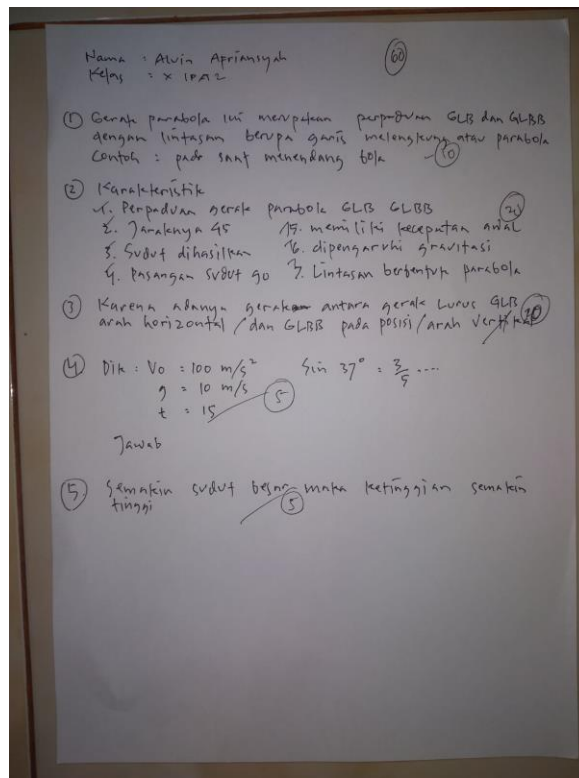 Nama : Alvin Apriansyah
60
Kelas : X IPA 2
① Gerak parabola ini merupakan perpaduan GLB dan GLBB
dengan lintasan berupa garis melengkung atau parabola
Contoh : pada saat menendang bola 10
② Karakteristik
1. Perpaduan gerak parabola GLB GLBB
2. Jaraknya 45 5. memiliki kecepatan awal
3. Sudut dihasilkan 6. dipengaruhi gravitasi
4. Pasangan sudut 90 7. Lintasan berbentuk parabola
③ Karena adanya gerakan antara gerak Lurus GLB
arah horizontal / dan GLBB pada posisi / arah vertikal
④ Dik : Vo = 100 m/s² Sin 37° = 3/5 ....
g = 10 m/s
t = 15 5
Jawab
⑤ Semakin sudut besar maka ketinggian semakin
tinggi 5